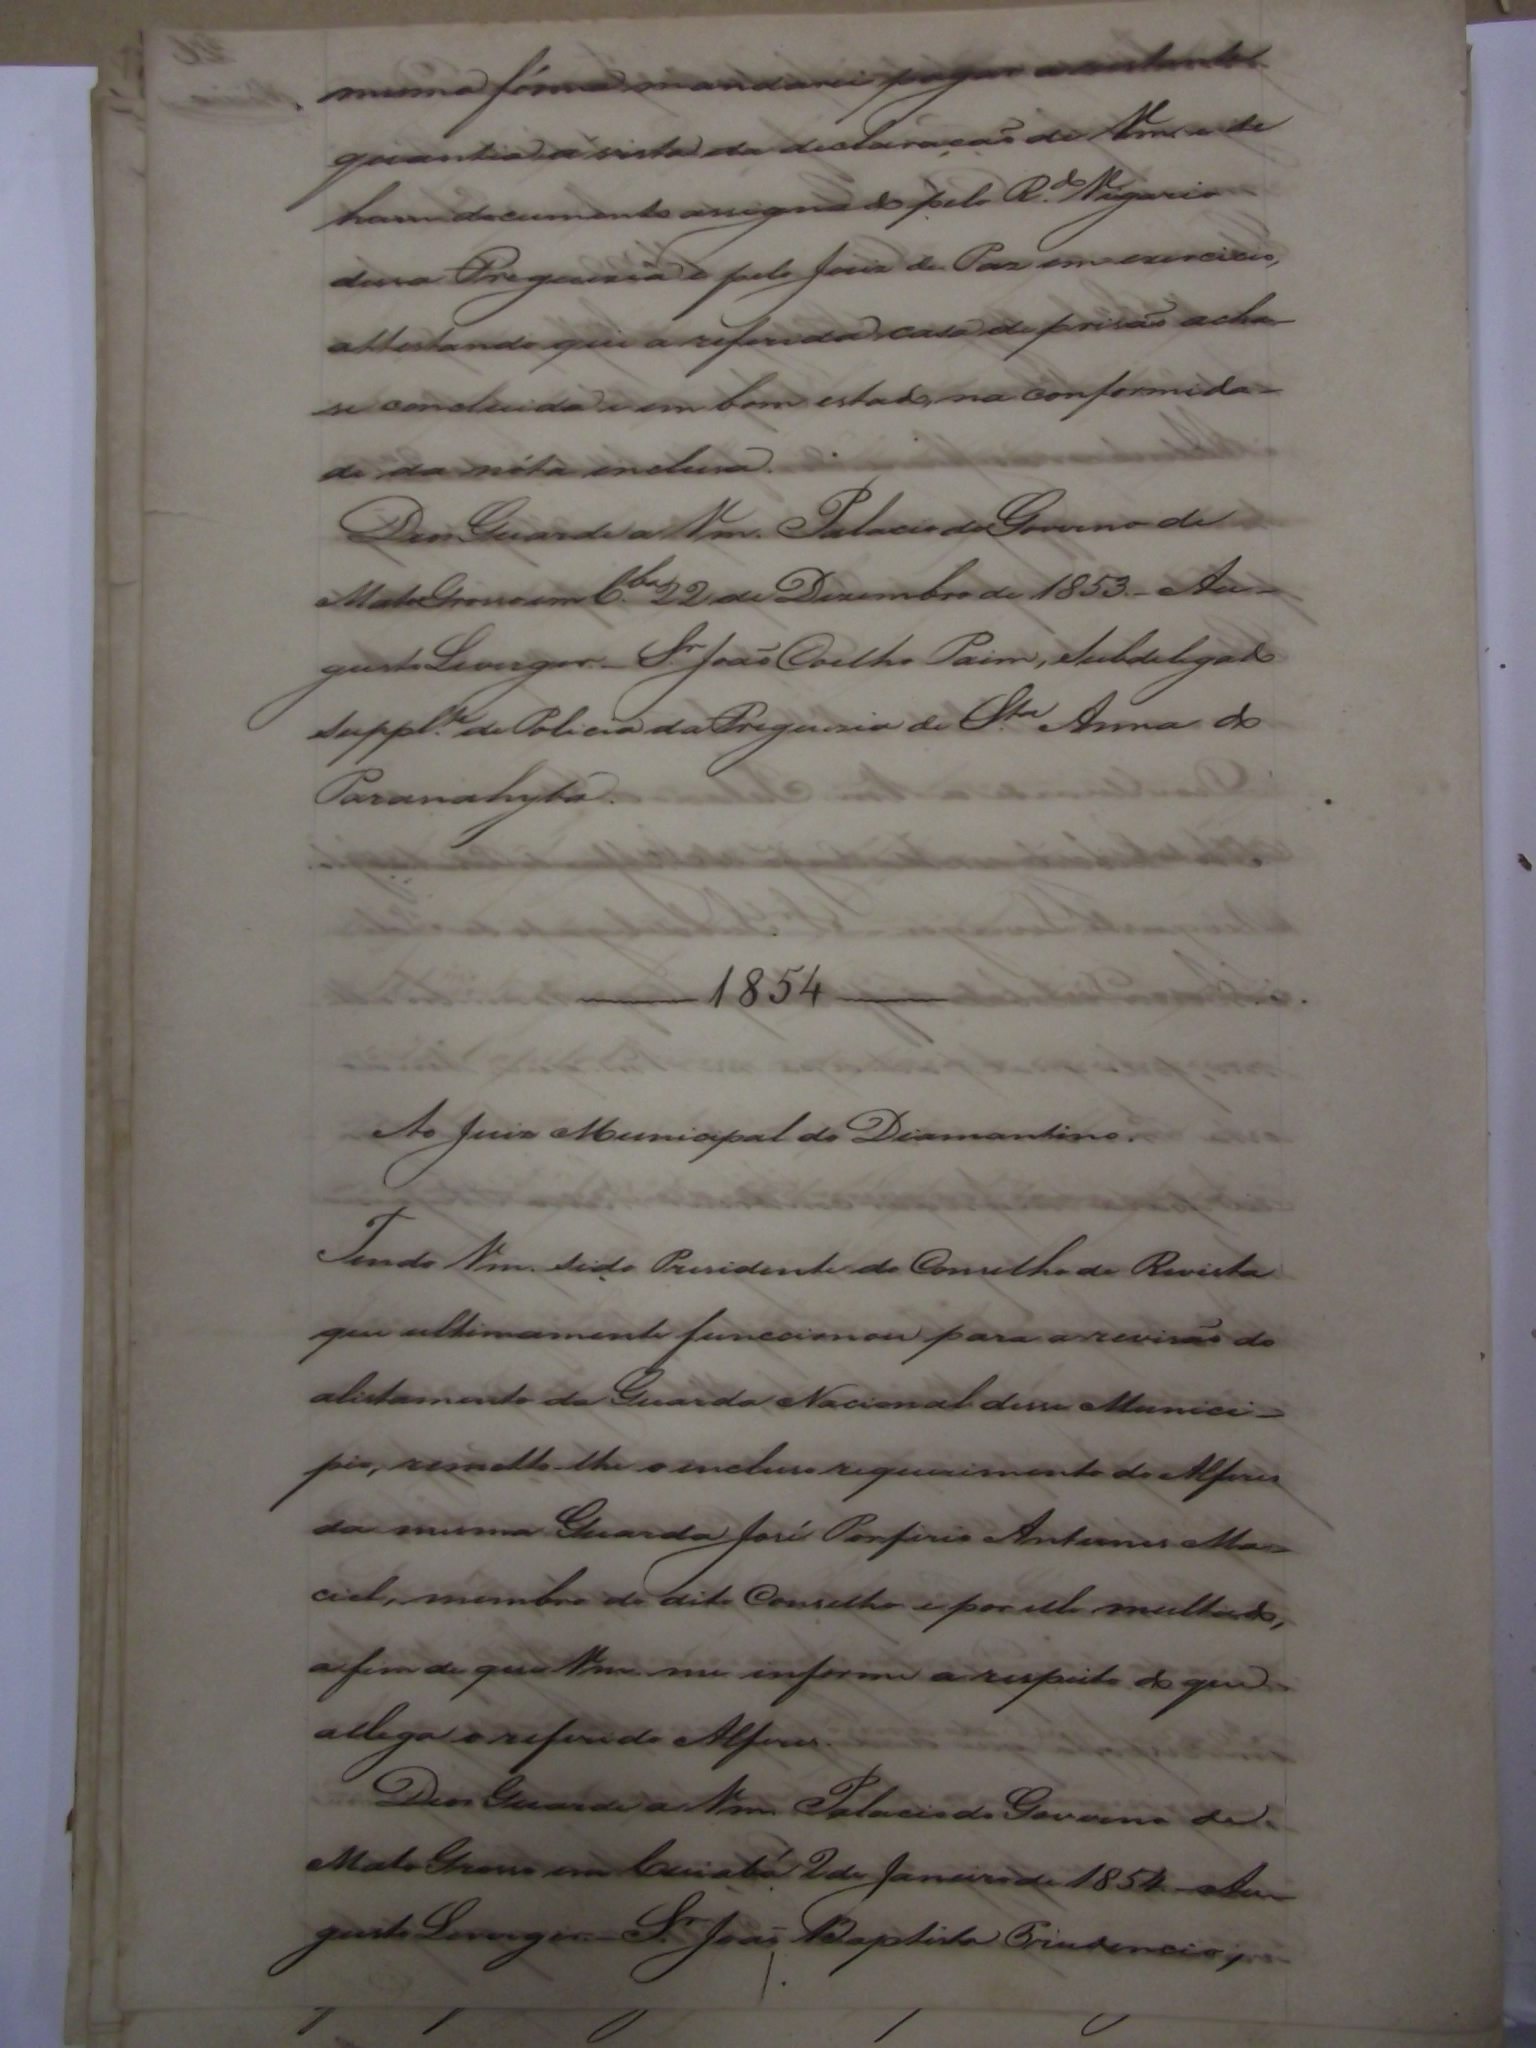 mesma fórma mandarei pagar a restante
quantia á vista da declaração de Vm. e de
hum documento assignado pelo R.do Vigario
dessa Freguezia e pelo Juiz de Paz em exercicio,
attestando que a referida casa de prisão acha-
se concluida e em bom estado, na conformida-
de da nóta inclusa.
Deos Guarde a Vm. Palacio do Governo de
Mato Grosso em C.bá 22 de Dezembro de 1853.- Au-
gusto Leverger - Sr. João Coelho Paim, Subdelegado
Suppl.te de Policia da Freguezia de Sta. Anna do
Paranahyba.
1854
Ao Juiz Municipal do Diamantino.
Tendo Vm. sido Presidente do Conselho de Revista
que ultimamente funccionou para a revisão do
alistamento da Guarda Nacional desse Munici-
pio, remetto-lhe o incluso requerimento do Alferes
da mesma Guarda José Porfirio Antunes Ma-
ciel, membro do dito Conselho e por elle multado,
a fim de que Vm. me informe a respeito do que
allega o referido Alferes.
Deos Guarde a Vm. Palacio do Governo de
Mato Grosso em Cuiabá 2 de Janeiro de 1854 - Au-
gusto Leverger - Sr. João Baptista Prudencio,